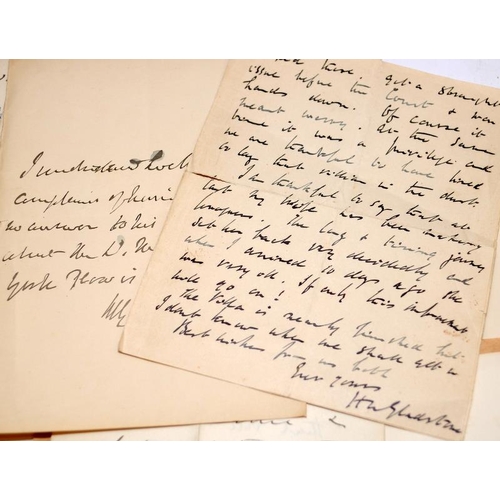 I understand Loch
complains of having
no answer to his
about the D. 
York
and there. got a straight
issue before the Court & won
hands down. Of course it
meant worry. At the same
time it was a privilege and
we are thankful to have lived
to lay that villain in the dust.
I am thankful to say that at
last my wife has been making
progress. The long & tiring journey
set her back very decidedly and
when I arrived 10 days ago she
was very ill. If only this improvement
will go on!
The Villa is nearly finished but
I don't know when we shall get a
Best wishes from us both
Ever yours
H N Gladstone